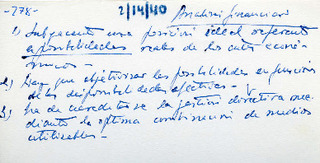 -278- 2/14/40 Analisis financiero
1) Subyacente una posición ideal referente
a posibilidades reales de los entes econó-
micos -
2) Hay que objetivizar las posibilidades en función
de las disponibilidades efectivas -
3) ha de acreditarse la gestión directiva me-
diante la óptima combinación de medios
utilizables -